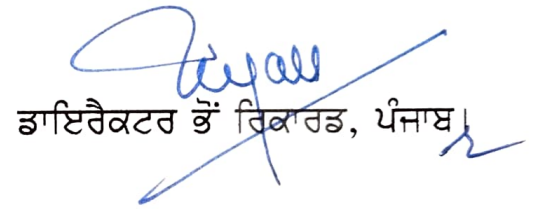 ਡਾਇਰੈਕਟਰ ਭੋਂ ਰਿਕਾਰਡ, ਪੰਜਾਬ।